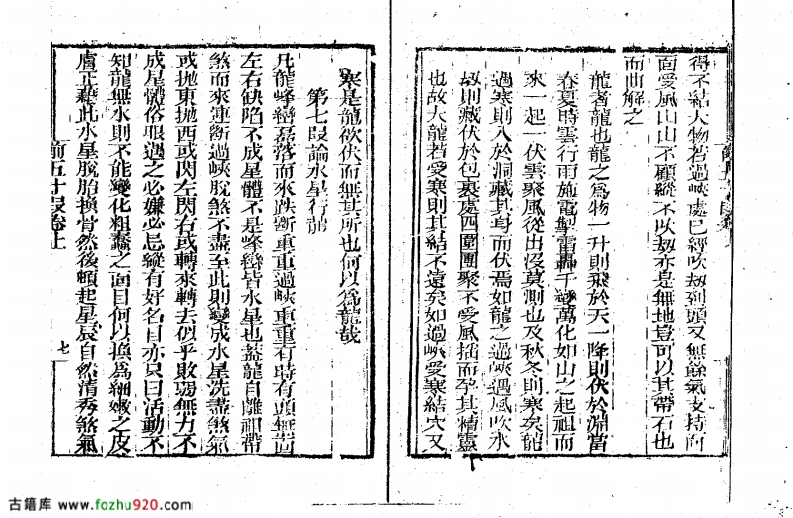 得不結大物若過峽處已經吹刼到頭又無餘氣支持向
面受風山山不顧縱不吹刼亦是無地豈可以其帶石也
而曲解之
龍者龍也龍之爲物一升則飛於天一降則伏於淵當
春夏時雲行雨施電掣雷轟千變萬化如山之起祖而
來一起一伏雲聚風從出沒莫測也及秋冬則寒矣龍
過寒則入於洞藏其身而伏焉如龍之過峽遇風吹水
刼則藏伏於包裹處四圍團聚不受風搖而孕其精靈
也故大龍若受寒則其結不遠矣如過峽受寒結穴又
寒是龍欲伏而無其所也何以爲龍哉
第七段論水星行龍
凡龍峰巒磊落而來跌斷重重過峽重重有時有頭無面
左右缺陷不成星體不是峰巒皆水星也蓋龍自離祖帶
煞而來連斷過峽脫煞不盡至此則變成水星洗盡煞氣
或拋東拋西或閃左閃右或轉來轉去似乎敗弱無力不
成星體俗眼遇之必嫌必忌縱有好名目亦只曰活動不
知龍無水則不能變化粗蠢之面目何以換爲細嫩之皮
膚正藉此水星脫胎換骨然後頓起星辰自然清秀煞氣
前五十段卷上
七
古籍库 www.fozhu920.com